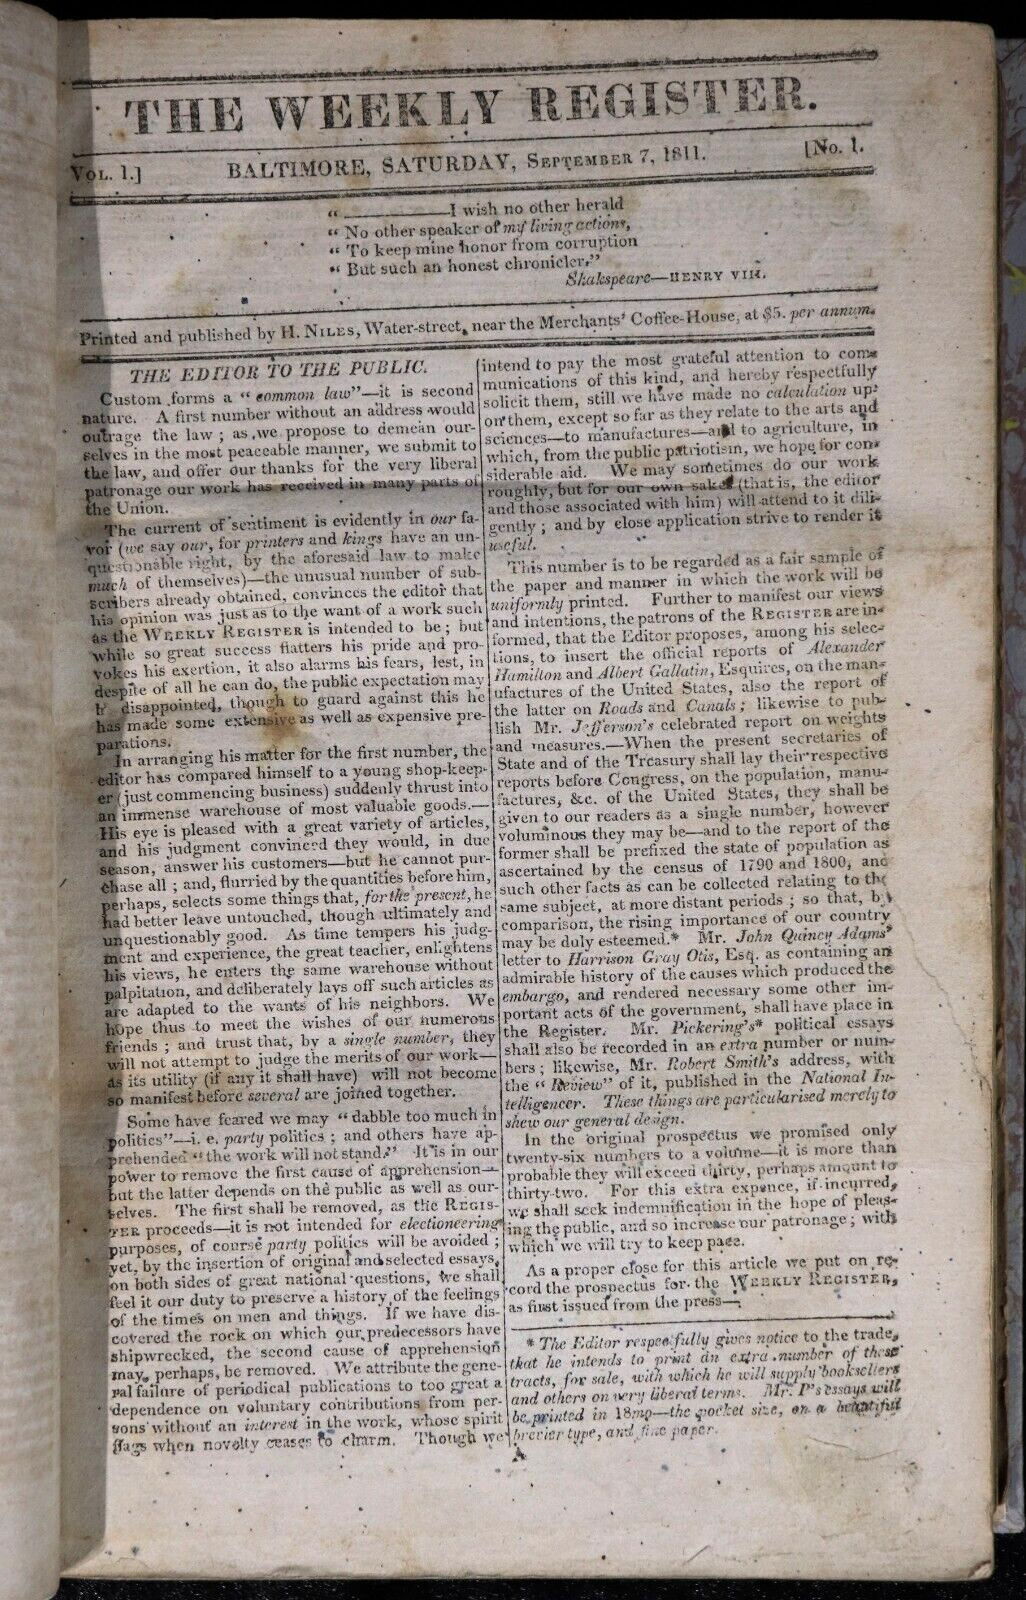 THE WEEKLY REGISTER.
VOL. 1.] BALTIMORE, SATURDAY, SEPTEMBER 7, 1811. [No. 1.
“ ————I wish no other herald
“ No other speaker of my living actions,
“ To keep mine honor from corruption
“ But such an honest chronicler.”
Shakspeare—HENRY VIII.
Printed and published by H. NILES, Water-street, near the Merchants' Coffee-House, at $5. per annum.
THE EDITOR TO THE PUBLIC.
Custom forms a “common law”—it is second
nature. A first number without an address would
outrage the law; as we propose to demean our-
selves in the most peaceable manner, we submit to
the law, and offer our thanks for the very liberal
patronage our work has received in many parts of
the Union.
The current of sentiment is evidently in our fa-
vor (we say our, for printers and kings have an un-
questionable right, by the aforesaid law to make
much of themselves)—the unusual number of sub-
scribers already obtained, convinces the editor that
his opinion was just as to the want of a work such
as the WEEKLY REGISTER is intended to be; but
while so great success flatters his pride and pro-
vokes his exertion, it also alarms his fears, lest, in
despite of all he can do, the public expectation may
be disappointed, though to guard against this he
has made some extensive as well as expensive pre-
parations.
In arranging his matter for the first number, the
editor has compared himself to a young shop-keep-
er (just commencing business) suddenly thrust into
an immense warehouse of most valuable goods.—
His eye is pleased with a great variety of articles,
and his judgment convinced they would, in due
season, answer his customers—but he cannot pur-
chase all; and, flurried by the quantities before him,
perhaps, selects some things that, for the present, he
had better leave untouched, though ultimately and
unquestionably good. As time tempers his judg-
ment and experience, the great teacher, enlightens
his views, he enters the same warehouse without
palpitation, and deliberately lays off such articles as
are adapted to the wants of his neighbors. We
hope thus to meet the wishes of our numerous
friends; and trust that, by a single number, they
will not attempt to judge the merits of our work—
as its utility (if any it shall have) will not become
so manifest before several are joined together.
Some have feared we may “dabble too much in
politics”—i. e. party politics; and others have ap-
prehended “the work will not stand.” It is in our
power to remove the first cause of apprehension—
but the latter depends on the public as well as our-
selves. The first shall be removed, as the REGIS-
TER proceeds—it is not intended for electioneering
purposes, of course party politics will be avoided;
yet, by the insertion of original and selected essays,
on both sides of great national questions, we shall
feel it our duty to preserve a history of the feelings
of the times on men and things. If we have dis-
covered the rock on which our predecessors have
shipwrecked, the second cause of apprehension
may, perhaps, be removed. We attribute the gene-
ral failure of periodical publications to too great a
dependence on voluntary contributions from per-
sons without an interest in the work, whose spirit
flags when novelty ceases to charm. Though we
intend to pay the most grateful attention to com-
munications of this kind, and hereby respectfully
solicit them, still we have made no calculation up-
on them, except so far as they relate to the arts and
sciences—to manufactures—and to agriculture, in
which, from the public patriotism, we hope for con-
siderable aid. We may sometimes do our work
roughly, but for our own sakes (that is, the editor
and those associated with him) will attend to it dili-
gently; and by close application strive to render it
useful.
This number is to be regarded as a fair sample of
the paper and manner in which the work will be
uniformly printed. Further to manifest our views
and intentions, the patrons of the REGISTER are in-
formed, that the Editor proposes, among his selec-
tions, to insert the official reports of Alexander
Hamilton and Albert Gallatin, Esquires, on the man-
ufactures of the United States, also the report of
the latter on Roads and Canals; likewise to pub-
lish Mr. Jefferson's celebrated report on weights
and measures.—When the present secretaries of
State and of the Treasury shall lay their respective
reports before Congress, on the population, manu-
factures, &c. of the United States, they shall be
given to our readers as a single number, however
voluminous they may be—and to the report of the
former shall be prefixed the state of population as
ascertained by the census of 1790 and 1800, and
such other facts as can be collected relating to the
same subject, at more distant periods; so that, by
comparison, the rising importance of our country
may be duly esteemed.* Mr. John Quincy Adams'
letter to Harrison Gray Otis, Esq. as containing an
admirable history of the causes which produced the
embargo, and rendered necessary some other im-
portant acts of the government, shall have place in
the Register. Mr. Pickering's* political essays
shall also be recorded in an extra number or num-
bers; likewise, Mr. Robert Smith's address, with
the “Review” of it, published in the National In-
telligencer. These things are particularised merely to
shew our general design.
In the original prospectus we promised only
twenty-six numbers to a volume—it is more than
probable they will exceed thirty, perhaps amount to
thirty-two. For this extra expence, if incurred,
we shall seek indemnification in the hope of pleas-
ing the public, and so increase our patronage; with
which we will try to keep pace.
As a proper close for this article we put on re-
cord the prospectus for the WEEKLY REGISTER,
as first issued from the press—
* The Editor respectfully gives notice to the trade,
that he intends to print an extra number of these
tracts, for sale, with which he will supply booksellers
and others on very liberal terms. Mr. P's essays will
be printed in 18mo—the pocket size, on a beautiful
brevier type, and fine paper.